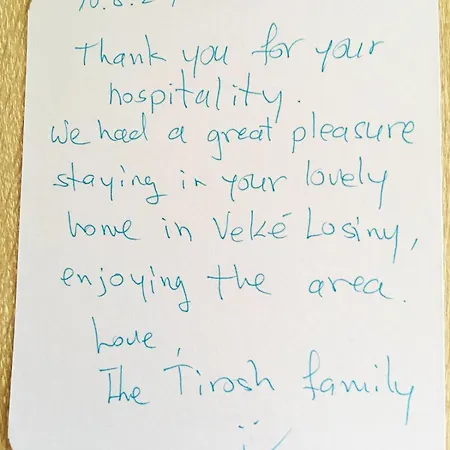 Thank you for your
hospitality.
We had a great pleasure
staying in your lovely
home in Veké Losiny,
enjoying the area.
Love,
The Tirosh family